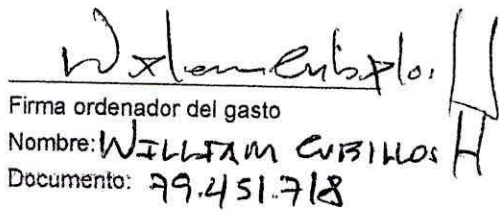 Firma ordenador del gasto
Nombre: WILLIAM CUBILLOS H
Documento: 79.451.718